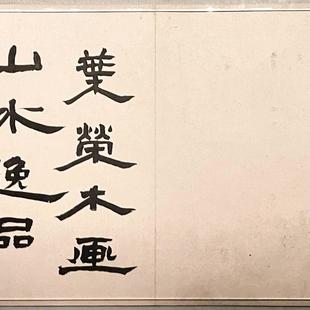 葉榮木画
山水逸品